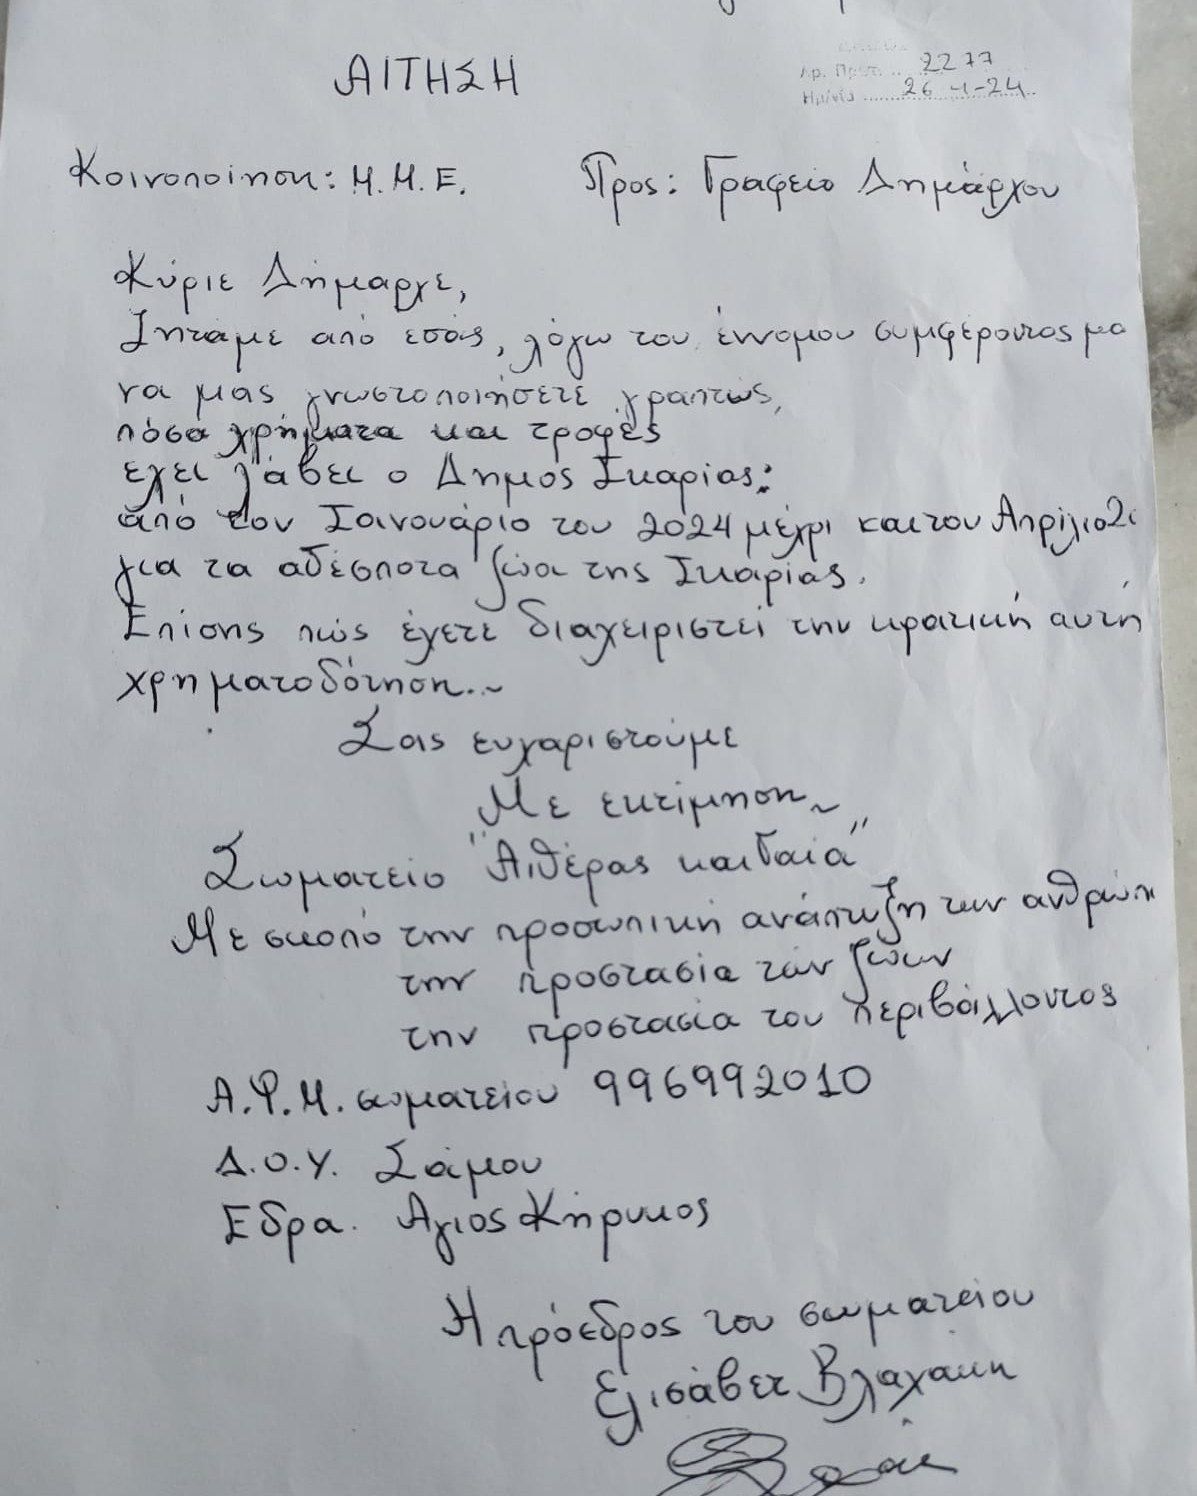 ΑΙΤΗΣΗ
Αρ. Πρωτ. .. 2277
Ημ/νία ..... 26-4-24
Κοινοποίηση: Μ.Μ.Ε. Προς: Γραφείο Δημάρχου
Κύριε Δήμαρχε,
Ζητάμε από εσάς, λόγω του έννομου συμφέροντος μα
να μας γνωστοποιήσετε γραπτώς,
πόσα χρήματα και τροφές
έχει λάβει ο Δήμος Ικαρίας:
από τον Ιανουάριο του 2024 μέχρι και τον Απρίλιο 2
για τα αδέσποτα ζώα της Ικαρίας.
Επίσης πώς έχετε διαχειριστεί την κρατική αυτή
χρηματοδότηση..~
Σας ευχαριστούμε
Με εκτίμηση~
Σωματείο "Αιθέρας και Γαία"
Με σκοπό την προσωπική ανάπτυξη των ανθρώπ
την προστασία των ζώων
την προστασία του περιβάλλοντος
Α.Φ.Μ. σωματείου 996992010
Δ.Ο.Υ. Σάμου
Έδρα. Άγιος Κήρυκος
Η πρόεδρος του σωματείου
Ελισάβετ Βλαχάκη